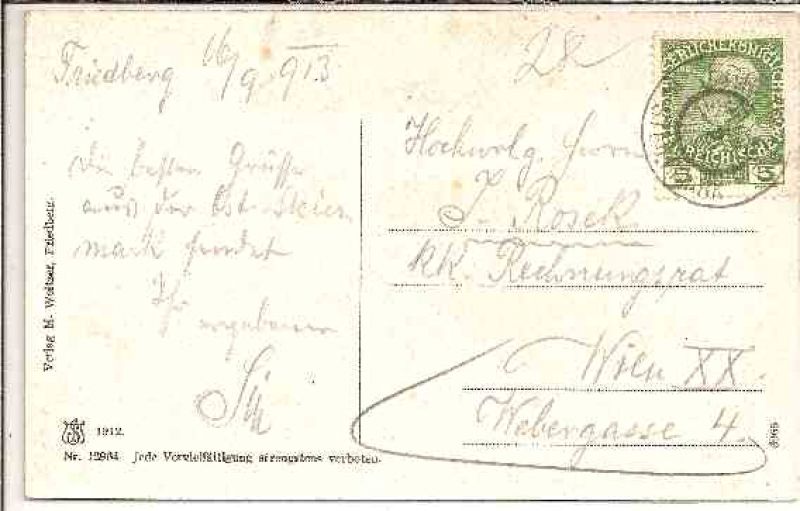 Friedberg 16/9 913
28
Die besten Grüsse
aus der Ost-Steier-
mark sendet
Ihr ergebener
Hochwolg. Herrn
J. Rosek
kk. Rechnungsrat
Wien XX.
Webergasse 4.
REICHISCHE
5 5
Verlag M. Weitzer, Friedberg.
1912.
Nr. 12964 Jede Vervielfältigung strengstens verboten.